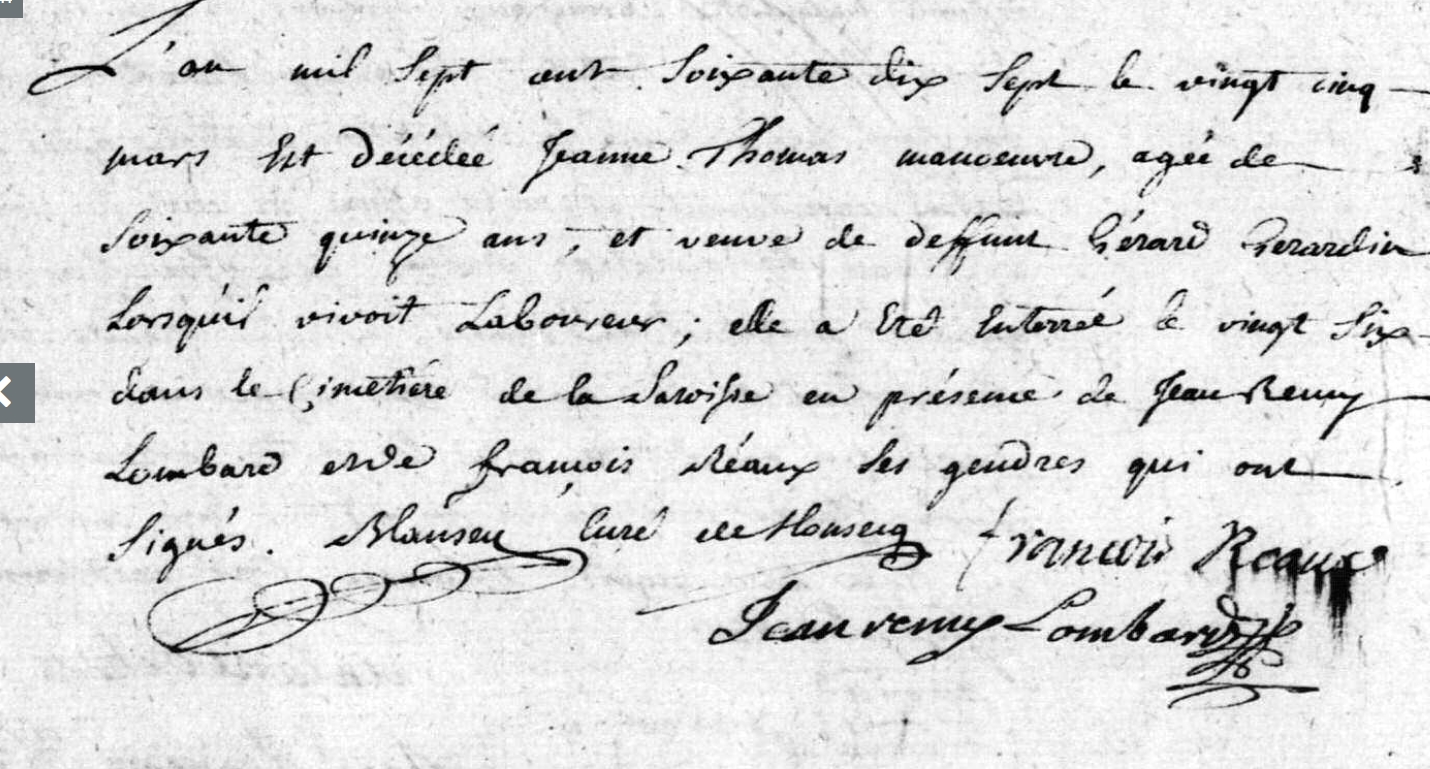 L'an mil Sept cent Soixante dix Sept le vingt cinq
mars Est décédée Jeanne Thomas manoeuvre, agée de
Soixante quinze ans, et veuve de deffunt Gérard Gerardin
Lorsqu'il vivoit Laboureur ; elle a Eté Enterrée le vingt Six
dans le Cimetière de la Paroisse en présence de Jean Remy
Lombard et de françois Réaux Ses gendres qui ont
Signés. Curé de francois Reaux
Jean remy Lombard